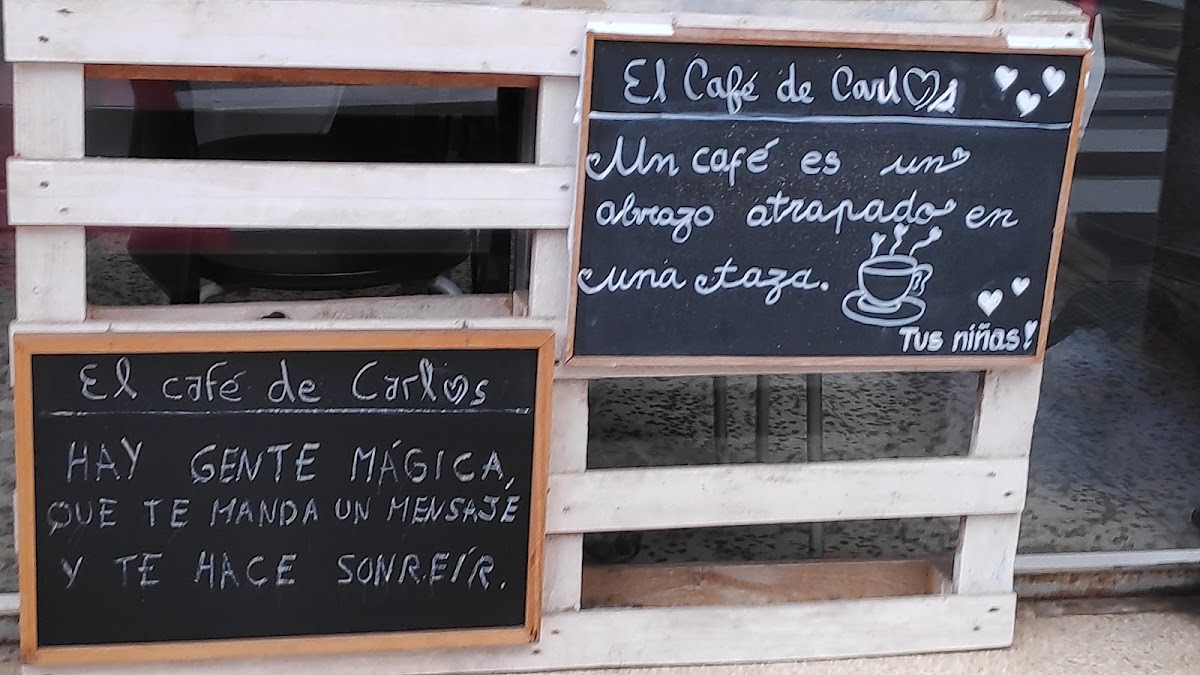 El Café de Carlos
Un café es un
abrazo atrapado en
una taza.
Tus niñas!
El café de Carlos
HAY GENTE MÁGICA,
QUE TE MANDA UN MENSAJE
Y TE HACE SONREÍR.